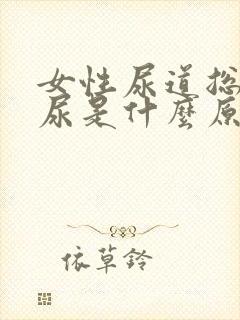 女性尿道总
尿是什麼原
依草鈴